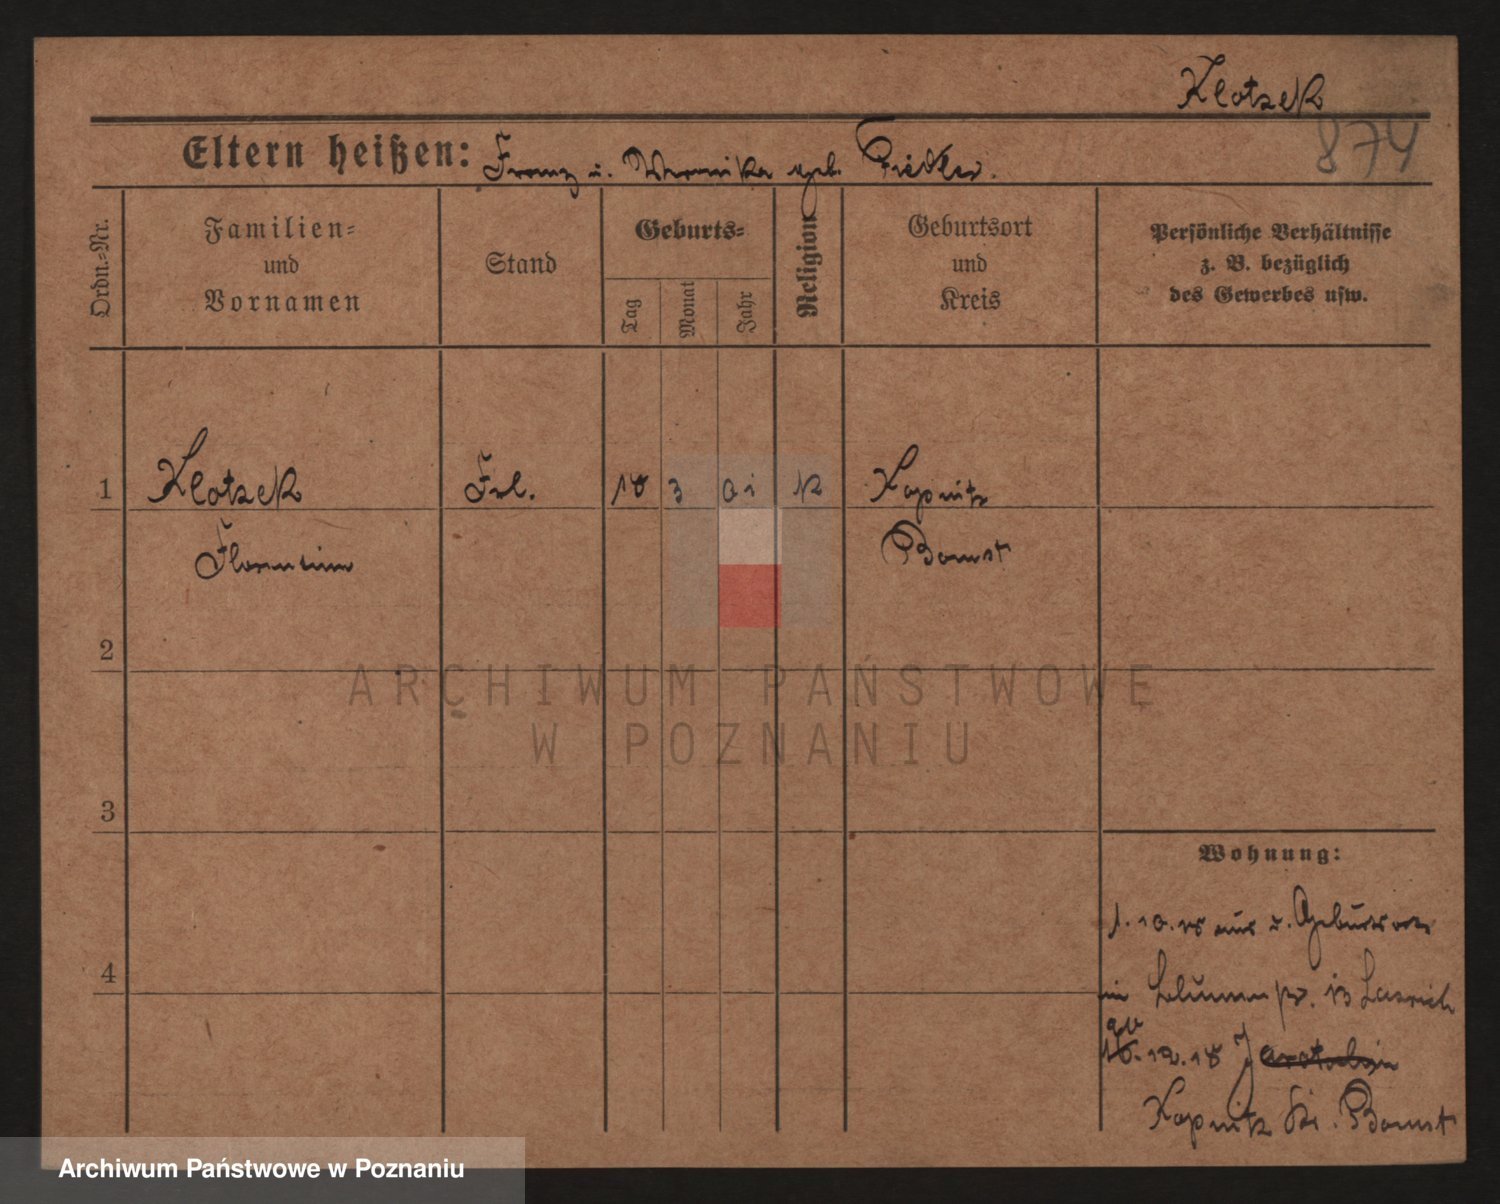 Klotzek
874
Eltern heißen: Franz u. Veronika geb. Fiedler.
Ordn.-Nr.
Familien-
und
Vornamen
Stand
Geburts-
Tag
Monat
Jahr
Religion
Geburtsort
und
Kreis
Persönliche Verhältnisse
z. B. bezüglich
des Gewerbes usw.
1 Klotzek Frl. 18 3 01 K Kopnitz
Florentine Bomst
2
3
4
Wohnung:
1. 10. 18 aus d. Geburtsort
in Blumen 13
12. 18 Jarotschin
Kopnitz Kr. Bomst
ARCHIWUM PAŃSTWOWE
W POZNANIU
Archiwum Państwowe w Poznaniu